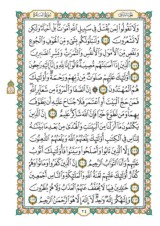 وَلَا تَقُولُوا لِمَن يُقْتَلُ فِي سَبِيلِ اللَّهِ أَمْوَاتٌ بَلْ أَحْيَاءٌ وَلَٰكِن
لَّا تَشْعُرُونَ وَلَنَبْلُوَنَّكُم بِشَيْءٍ مِّنَ الْخَوْفِ وَالْجُوعِ
وَنَقْصٍ مِّنَ الْأَمْوَالِ وَالْأَنفُسِ وَالثَّمَرَاتِ وَبَشِّرِ الصَّابِرِينَ
الَّذِينَ إِذَا أَصَابَتْهُم مُّصِيبَةٌ قَالُوا إِنَّا لِلَّهِ وَإِنَّا إِلَيْهِ رَاجِعُونَ
أُولَٰئِكَ عَلَيْهِمْ صَلَوَاتٌ مِّن رَّبِّهِمْ وَرَحْمَةٌ وَأُولَٰئِكَ
هُمُ الْمُهْتَدُونَ إِنَّ الصَّفَا وَالْمَرْوَةَ مِن شَعَائِرِ اللَّهِ
فَمَنْ حَجَّ الْبَيْتَ أَوِ اعْتَمَرَ فَلَا جُنَاحَ عَلَيْهِ أَن يَطَّوَّفَ
بِهِمَا وَمَن تَطَوَّعَ خَيْرًا فَإِنَّ اللَّهَ شَاكِرٌ عَلِيمٌ إِنَّ الَّذِينَ
يَكْتُمُونَ مَا أَنزَلْنَا مِنَ الْبَيِّنَاتِ وَالْهُدَىٰ مِن بَعْدِ مَا بَيَّنَّاهُ
لِلنَّاسِ فِي الْكِتَابِ أُولَٰئِكَ يَلْعَنُهُمُ اللَّهُ وَيَلْعَنُهُمُ
اللَّاعِنُونَ إِلَّا الَّذِينَ تَابُوا وَأَصْلَحُوا وَبَيَّنُوا فَأُولَٰئِكَ أَتُوبُ
عَلَيْهِمْ وَأَنَا التَّوَّابُ الرَّحِيمُ إِنَّ الَّذِينَ كَفَرُوا وَمَاتُوا وَهُمْ
كُفَّارٌ أُولَٰئِكَ عَلَيْهِمْ لَعْنَةُ اللَّهِ وَالْمَلَائِكَةِ وَالنَّاسِ أَجْمَعِينَ
خَالِدِينَ فِيهَا لَا يُخَفَّفُ عَنْهُمُ الْعَذَابُ وَلَا هُمْ يُنظَرُونَ
وَإِلَٰهُكُمْ إِلَٰهٌ وَاحِدٌ لَّا إِلَٰهَ إِلَّا هُوَ الرَّحْمَٰنُ الرَّحِيمُ
٢٤